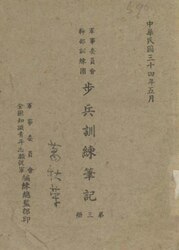 中華民國三十四年五月
軍事委員會
幹部訓練團
步兵訓練筆記
第三冊
軍事委員會
全國知識青年志願從軍
編練總監部印